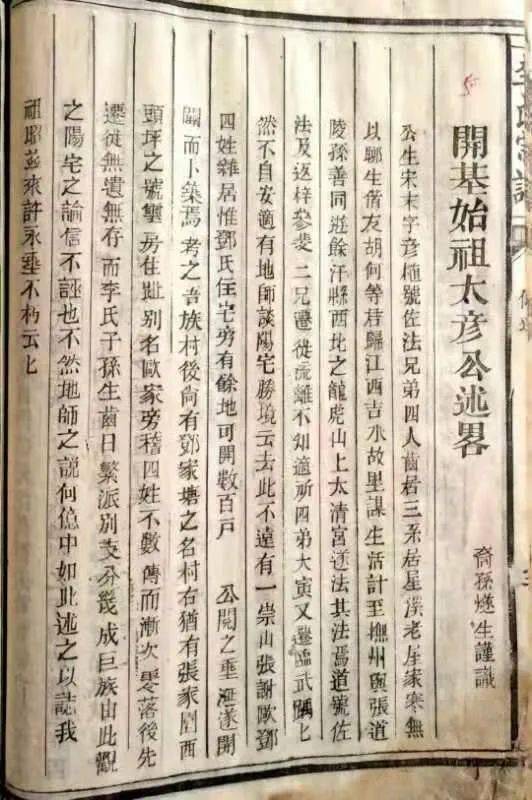 開基始祖太彥公述畧
裔孫燧生謹識
公生宋末字彥極號佐法兄弟四人齒居三系居星溪老屋家寒無
以聊生偕友胡何等桂歸江西吉水故里謀生活計至撫州與張道
陵孫善同遊餘汗縣西北之龍虎山上太清宮道法其法焉道號佐
法及返梓 二兄遷徙流離不知適所四弟大寅又臨武
然不自安適有地師談陽宅勝境云去此不遠有一崇山張謝歐鄧
四姓雜居惟鄧氏住宅旁有餘地可開數百戶 公聞之垂涎遂開
闢而卜築焉考之吾族村後尚有鄧家塘之名村右猶有張家園西
頭坪之號舊房住趾別名歐家旁稽四姓不數傳而漸次零落後先
遷徙無遺無存而李氏子孫生齒日繁派別支分幾成巨族由此觀
之陽宅之論信不誣也不然地師之說何億中如此述之以誌我
祖昭彭來許永垂不朽云